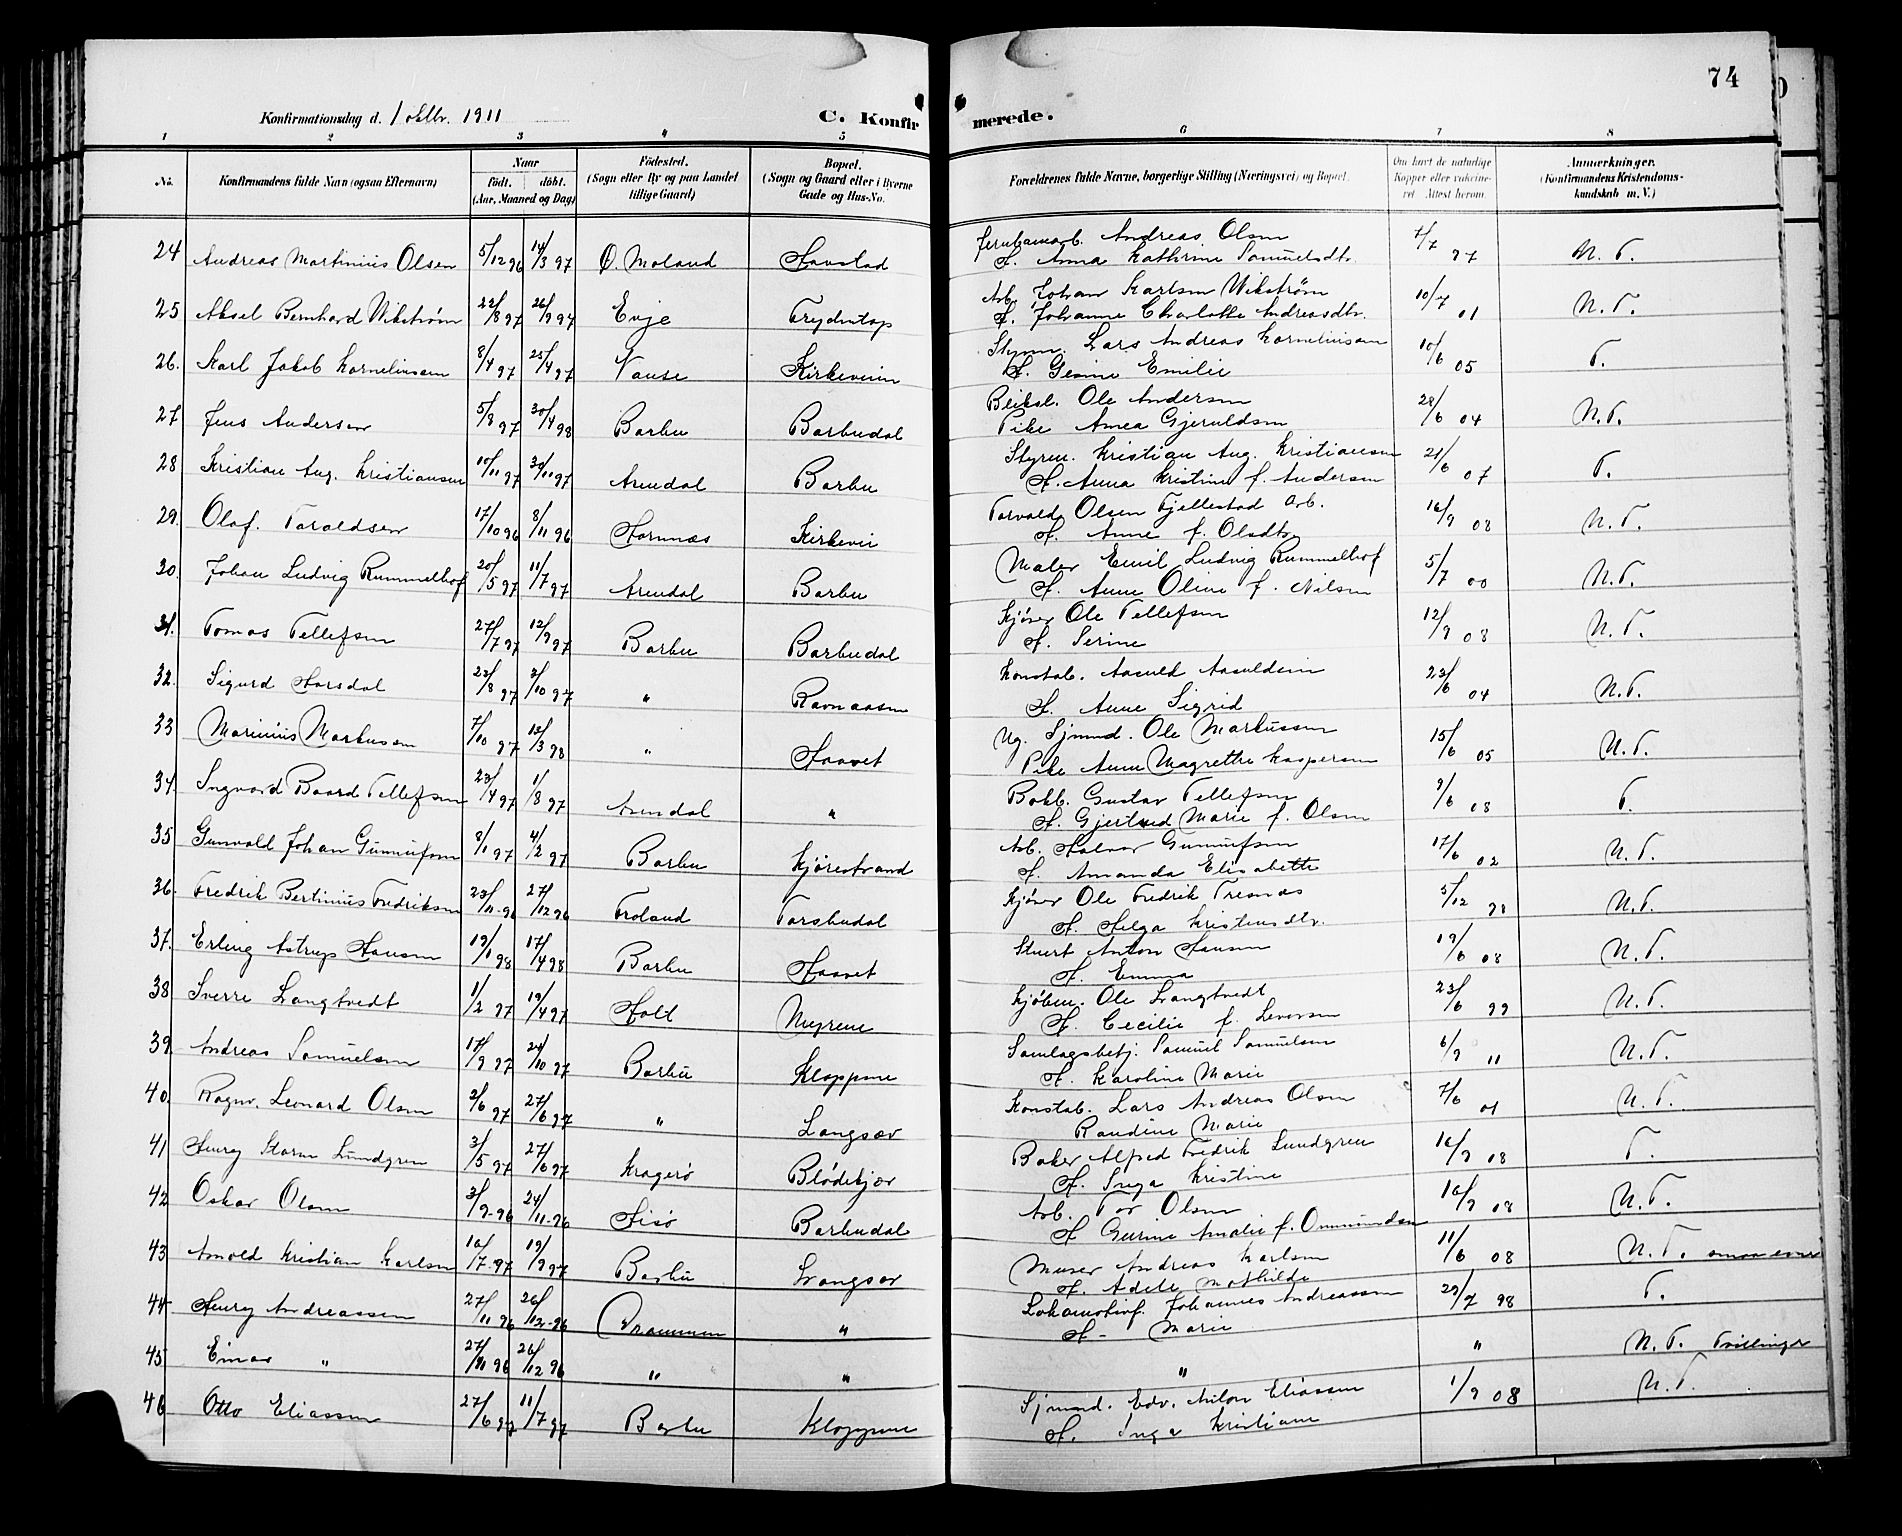 74
Konfirmationsdag d. 1 oktbr. 1911
C. Konfirmerede.
1 2 3 4 5 6 7 8
No. Konfirmandens fulde Navn (ogsaa Efternavn) Naar født. døbt. (Aar, Maaned og Dag) Fødested. (Sogn eller By og paa Landet tillige Gaard) Bopæl. (Sogn og Gaard eller i Byerne Gade og Hus-No. Forældrenes fulde Navne, borgerlige Stilling (Næringsvei) og Bopæl. Om havt de naturlige Kopper eller vakcineret. Attest herom. Anmerkninger. (Konfirmandens Kristendomskundskab m. V.)
24 Andreas Martinius Olsen 5/12 96 14/3 97 Ø. Moland Havstad Andreas Olsen 7/7 97 M. T.
H. Anna Kathrine Samuelsdtr.
25 Aksel Bernhard Wikstrøm 22/8 97 26/9 97 Evje Frydentop Arb. Johan Karlsen Wikstrøm 10/7 01 N. T.
H. Johanne Charlotte Andreasdtr.
26. Karl Jakob Korneliussen 8/4 97 25/4 97 Vanse Kirkeveien Styrm. Lars Andreas Korneliussen 10/6 05 T.
H. Gesine Emilie
27 Jens Andersen 5/8 97 30/4 98 Barbu Barbudal Bliksl. Ole Andersen 28/6 04 N. T.
Pike Anea Gjeruldsen
28 Kristian Aug. Kristiansen 10/11 97 30/11 97 Arendal Barbu Styrm. Kristian Aug. Kristiansen 21/6 07 T.
H. Anna Kristine f. Andersen
29. Olaf Taraldsen 17/10 96 8/11 96 Hornnæs Kirkevei Torvald Olsen Fjellestad Arb. 16/9 08 N. T.
H. Anne f. Olsdtr.
30. Johan Ludvig Rummelhof 20/5 97 11/7 97 Arendal Barbu Maler Emil Ludvig Rummelhof 5/7 00 N. T.
H. Anne Oline f. Nilsen
31. Tomas Tellefsen 27/7 97 12/9 97 Barbu Barbudal Kjører Ole Tellefsen 12/9 08 N. T.
H. Serine
32. Sigurd Harsdal 23/8 97 3/10 97 " Ravnaasen Konstab. Aasuld Aasuldsen 23/6 04 N. T.
H. Anne Sigrid
33 Marinius Markussen 7/10 97 13/3 98 " Haavet Ug. Sjmnd. Ole Markussen 15/6 05 N. T.
Pike Anne Magrethe Kaspersen
34. Ingvard Baard Tellefsen 23/4 97 1/8 97 Arendal " Bokb. Gustav Tellefsen 9/6 08 T.
H. Gjertrud Marie f. Olsen
35 Gunvald Johan Gunnufsen 8/1 97 4/2 97 Barbu Kjørestrand Arb. Halvor Gunnufsen 17/6 02 N. T.
H. Amanda Elisabeth
36. Fredrik Bertinius Fredriksen 23/11-96 27/12 96 Froland Torsbudal Kjører Ole Fredrik Tresnes 5/12 98 N. T.
H. Helga Kristensdtr.
37. Erling Astrup Hansen 19/1 98 17/4 98 Barbu Haavet Stuert Anton Hansen 19/6 08 N. T.
H. Emma
38 Sverre Langtvedt 1/2 97 19/4 97 Holt Myrene Kjøbm. Ole Langtvedt 23/6 99 N. T.
H. Cecilie f. Leversen
39. Andreas Samuelsen 17/9 97 24/10 97 Barbu Kloppene Samlagsbetj. Samuel Samuelsen 6/9 11 N. T.
H. Karoline Marie
40. Ragnv. Leonard Olsen 2/6 97 27/6 97 " Langsæv Konstab. Lars Andreas Olsen 7/6 01 N. T.
Randine Marie
41 Henry Storm Lundgren 3/5 97 27/6 97 Kragerø Blødekjær Baker Alfred Fredrik Lundgren 16/9 08 T.
H. Inga Kristine
42 Oskar Olsen 3/9-96 24/11-96 Hisø Barbudal Arb. Tor Olsen 16/9 08 N. T.
H. Gurine Amalie f. Ommundsen
43 Arnold Kristian Karlsen 16/7-97 19/9 97 Barbu Langsæv Murer Andreas Karlsen 11/6 08 N. T.
H. Adele Mathilde
44 Henry Andreassen 27/11 96 26/12-96 Drammen " Lokomotivf. Johannes Andreassen 29/7 98 T.
H- Marie
45 Einar " 27/11 96 26/12 96 " " " " N. T. Tvillinger
46 Otto Eliassen 27/6 97 11/7 97 Barbu Kloppene Sjmand. Edv. Anton Eliassen 1/9 08 N. T.
H. Inga Kristiane